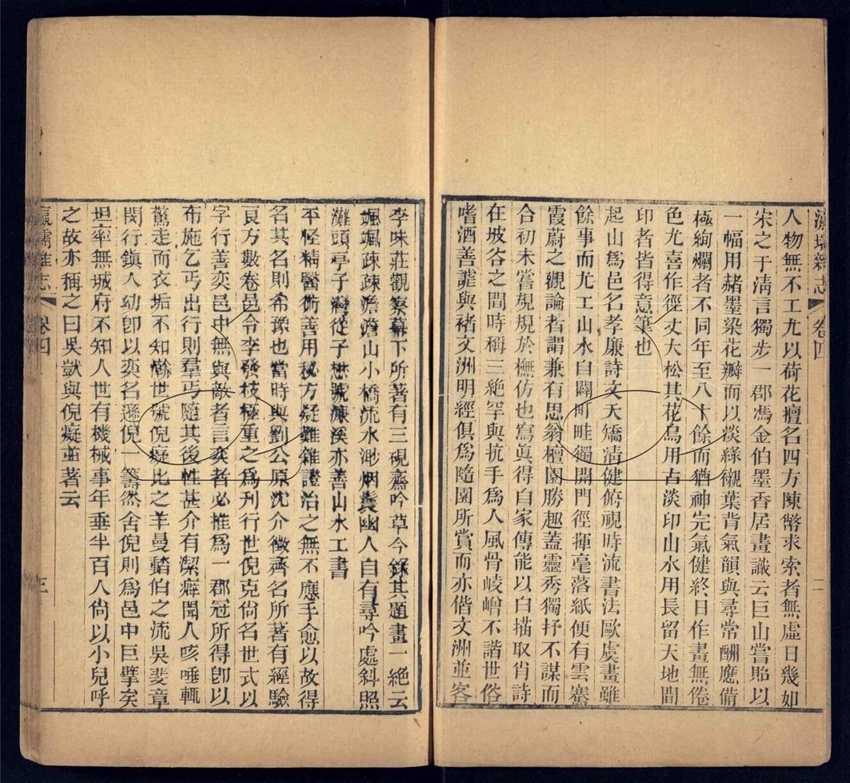 瀛壖雜志 卷四 二
人物無不工尤以荷花擅名四方陳幣求索者無虛日幾如
宋之于淸言獨步一郡馮金伯墨香居畫識云巨山嘗貽以
一幅用赭墨染花瓣而以淡綠襯葉背氣韻與尋常酬應備
極絢爛者不同年至八十餘而猶神完氣健終日作畫無倦
色尤喜作徑丈大松其花鳥用古淡印山水用長留天地間
印者皆得意筆也
起山爲邑名孝廉詩文天矯淸健俯視時流書法歐虞畫雖
餘事而尤工山水自闢町畦獨開門徑揮毫落紙便有雲蒸
霞蔚之觀論者謂兼有思翁檀園勝趣蓋靈秀獨抒不謀而
合初未嘗規規於橅仿也寫眞得自家傳能以白描取肖詩
在坡谷之間時稱三絶罕與抗手爲人風骨崚嶒不諧世俗
嗜酒善謔與褚文洲明經俱爲隨園所賞而亦偕文洲並客
李味莊觀察幕下所著有三硯齋吟草今錄其題畫一絶云
颯颯疎疎澹澹山小橋流水渺烟鬟幽人自有尋吟處斜照
灘頭亭子灣從子懋號濂溪亦善山水工書
平怪精醫術善用秘方疑難雜證治之無不應手愈以故得
名其名則希豫也當時與劉公原沈介徵齊名所著有經驗
良方數卷邑令李發枝極重之爲刋行世倪克尙名世式以
字行善奕邑中無與敵者言奕者必推爲一郡冠所得卽以
布施乞丐出行則羣丐隨其後性甚介有潔癖聞人咳唾輒
驚走而衣垢不知澣世號倪癡比之羊曼䵬伯之流吳斐章
閔行鎭人幼卽以奕名遜倪一籌然舍倪則爲邑中巨擘矣
坦率無城府不知人世有機械事年垂半百人尙以小兒呼
之故亦稱之曰吳獃與倪癡並著云
瀛壖雜志 卷四 三